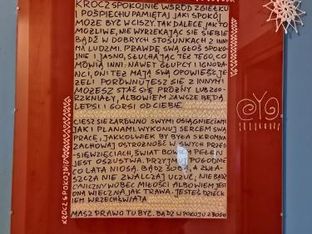 KROCZ SPOKOJNIE WŚRÓD ZGIEŁKU
I POŚPIECHU PAMIĘTAJ JAKI SPOKÓJ
MOŻE BYĆ W CISZY. TAK DALECE JAK TO
MOŻLIWE, NIE WYRZEKAJĄC SIĘ SIEBIE
BĄDŹ W DOBRYCH STOSUNKACH Z INNY
MI LUDŹMI. PRAWDĘ SWĄ GŁOŚ SPOKOJ
NIE I JASNO, SŁUCHAJĄC TEŻ TEGO, CO
MÓWIĄ INNI NAWET GŁUPCY I IGNORA
NCI, ONI TEŻ MAJĄ SWĄ OPOWIEŚĆ. JE
ŻELI PORÓWNUJESZ SIĘ Z INNYMI
MOŻESZ STAĆ SIĘ PRÓŻNY LUB ZGO
RZKNIAŁY, ALBOWIEM ZAWSZE BĘDĄ
LEPSI I GORSI OD CIEBIE.
CIESZ SIĘ ZARÓWNO SWYMI OSIĄGNIĘCIAMI
JAK I PLANAMI. WYKONUJ SERCEM SWĄ
PRACĘ, JAKKOLWIEK BY BYŁA SKROMNA
ZACHOWAJ OSTROŻNOŚĆ W SWYCH PRZED
SIĘWZIĘCIACH, ŚWIAT BOWIEM PEŁEN
JEST OSZUSTWA. PRZYJMUJ POGODNIE
CO LATA NIOSĄ. BĄDŹ SOBĄ, A ZWŁA
SZCZA NIE ZWALCZAJ UCZUĆ, NIE BĄDŹ
CYNICZNY WOBEC MIŁOŚCI ALBOWIEM JEST
ONA WIECZNA JAK TRAWA. JESTEŚ DZIECK
IEM WSZECHŚWIATA
MASZ PRAWO TU BYĆ. BĄDŹ W POKOJU Z BOGIEM
KROCZ SPOKOJNIE